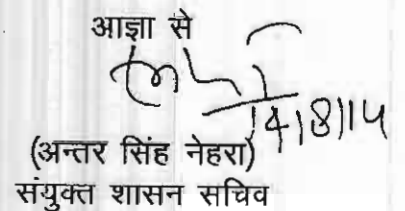 आज्ञा से
14|8|14
(अन्तर सिंह नेहरा)
संयुक्त शासन सचिव